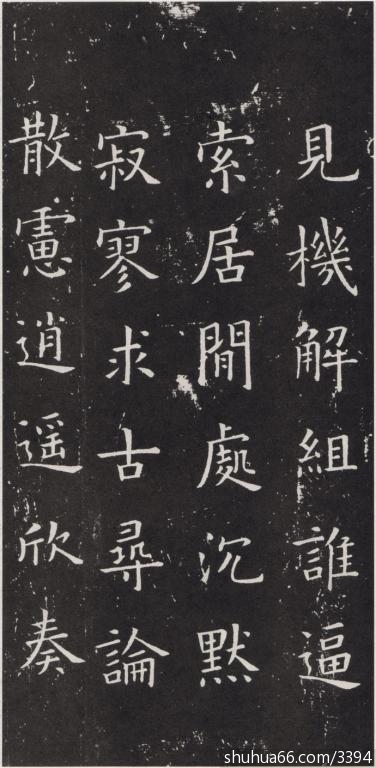 見機解組誰逼
索居閒處沉默
寂寥求古尋論
散慮逍遥欣奏
shuhua66.com/3394